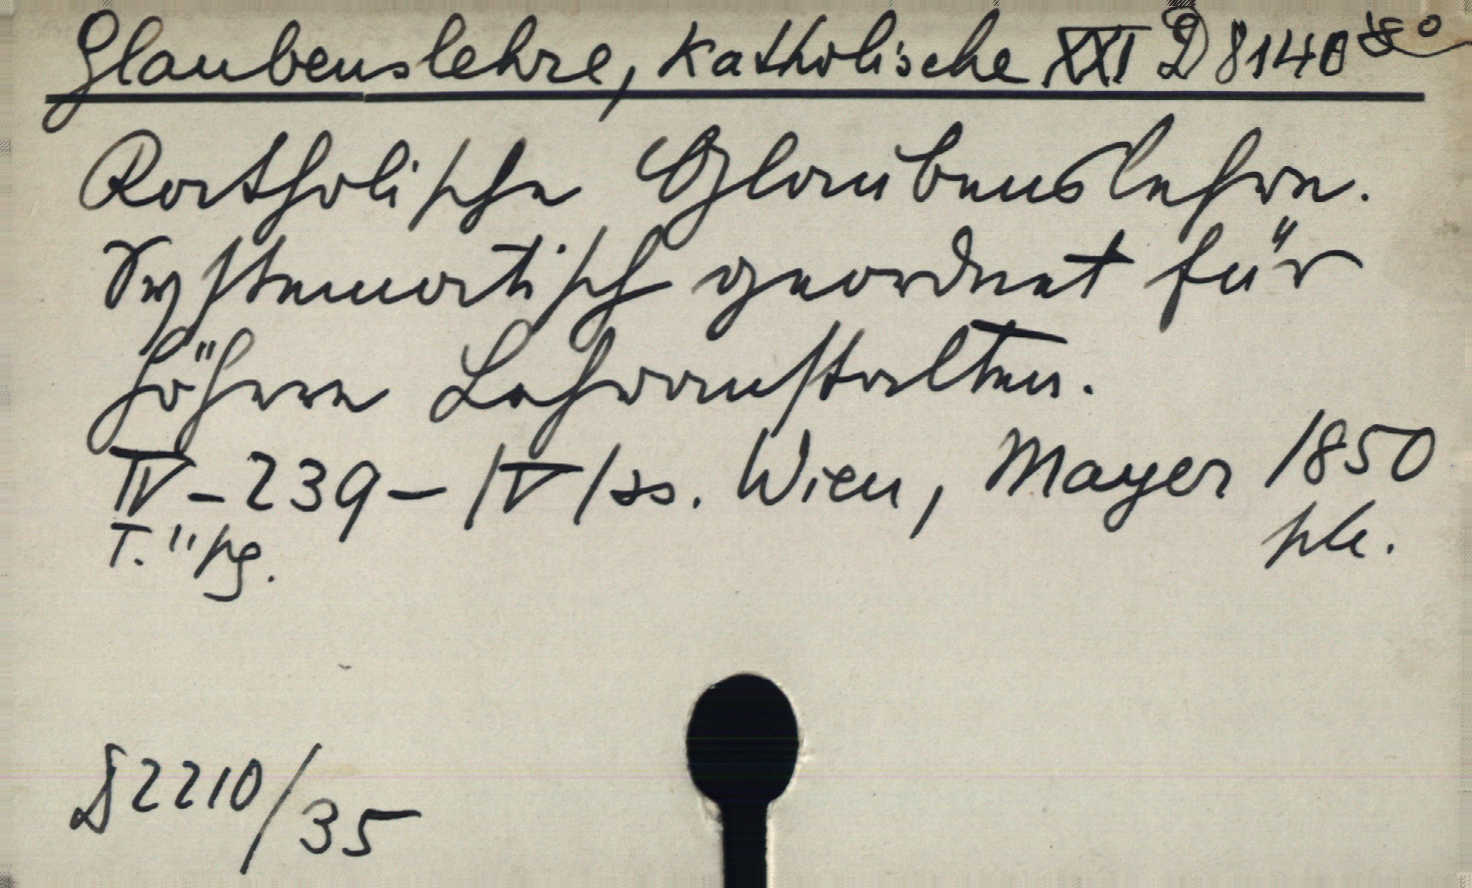 Glaubenslehre, katholische XXI D 8140
Katholische Glaubenslehre.
Systematisch geordnet für
höhere Lehranstalten.
IV-239-/V/ss. Wien, Mayer 1850
T. "pg. ple.
D 2210/35